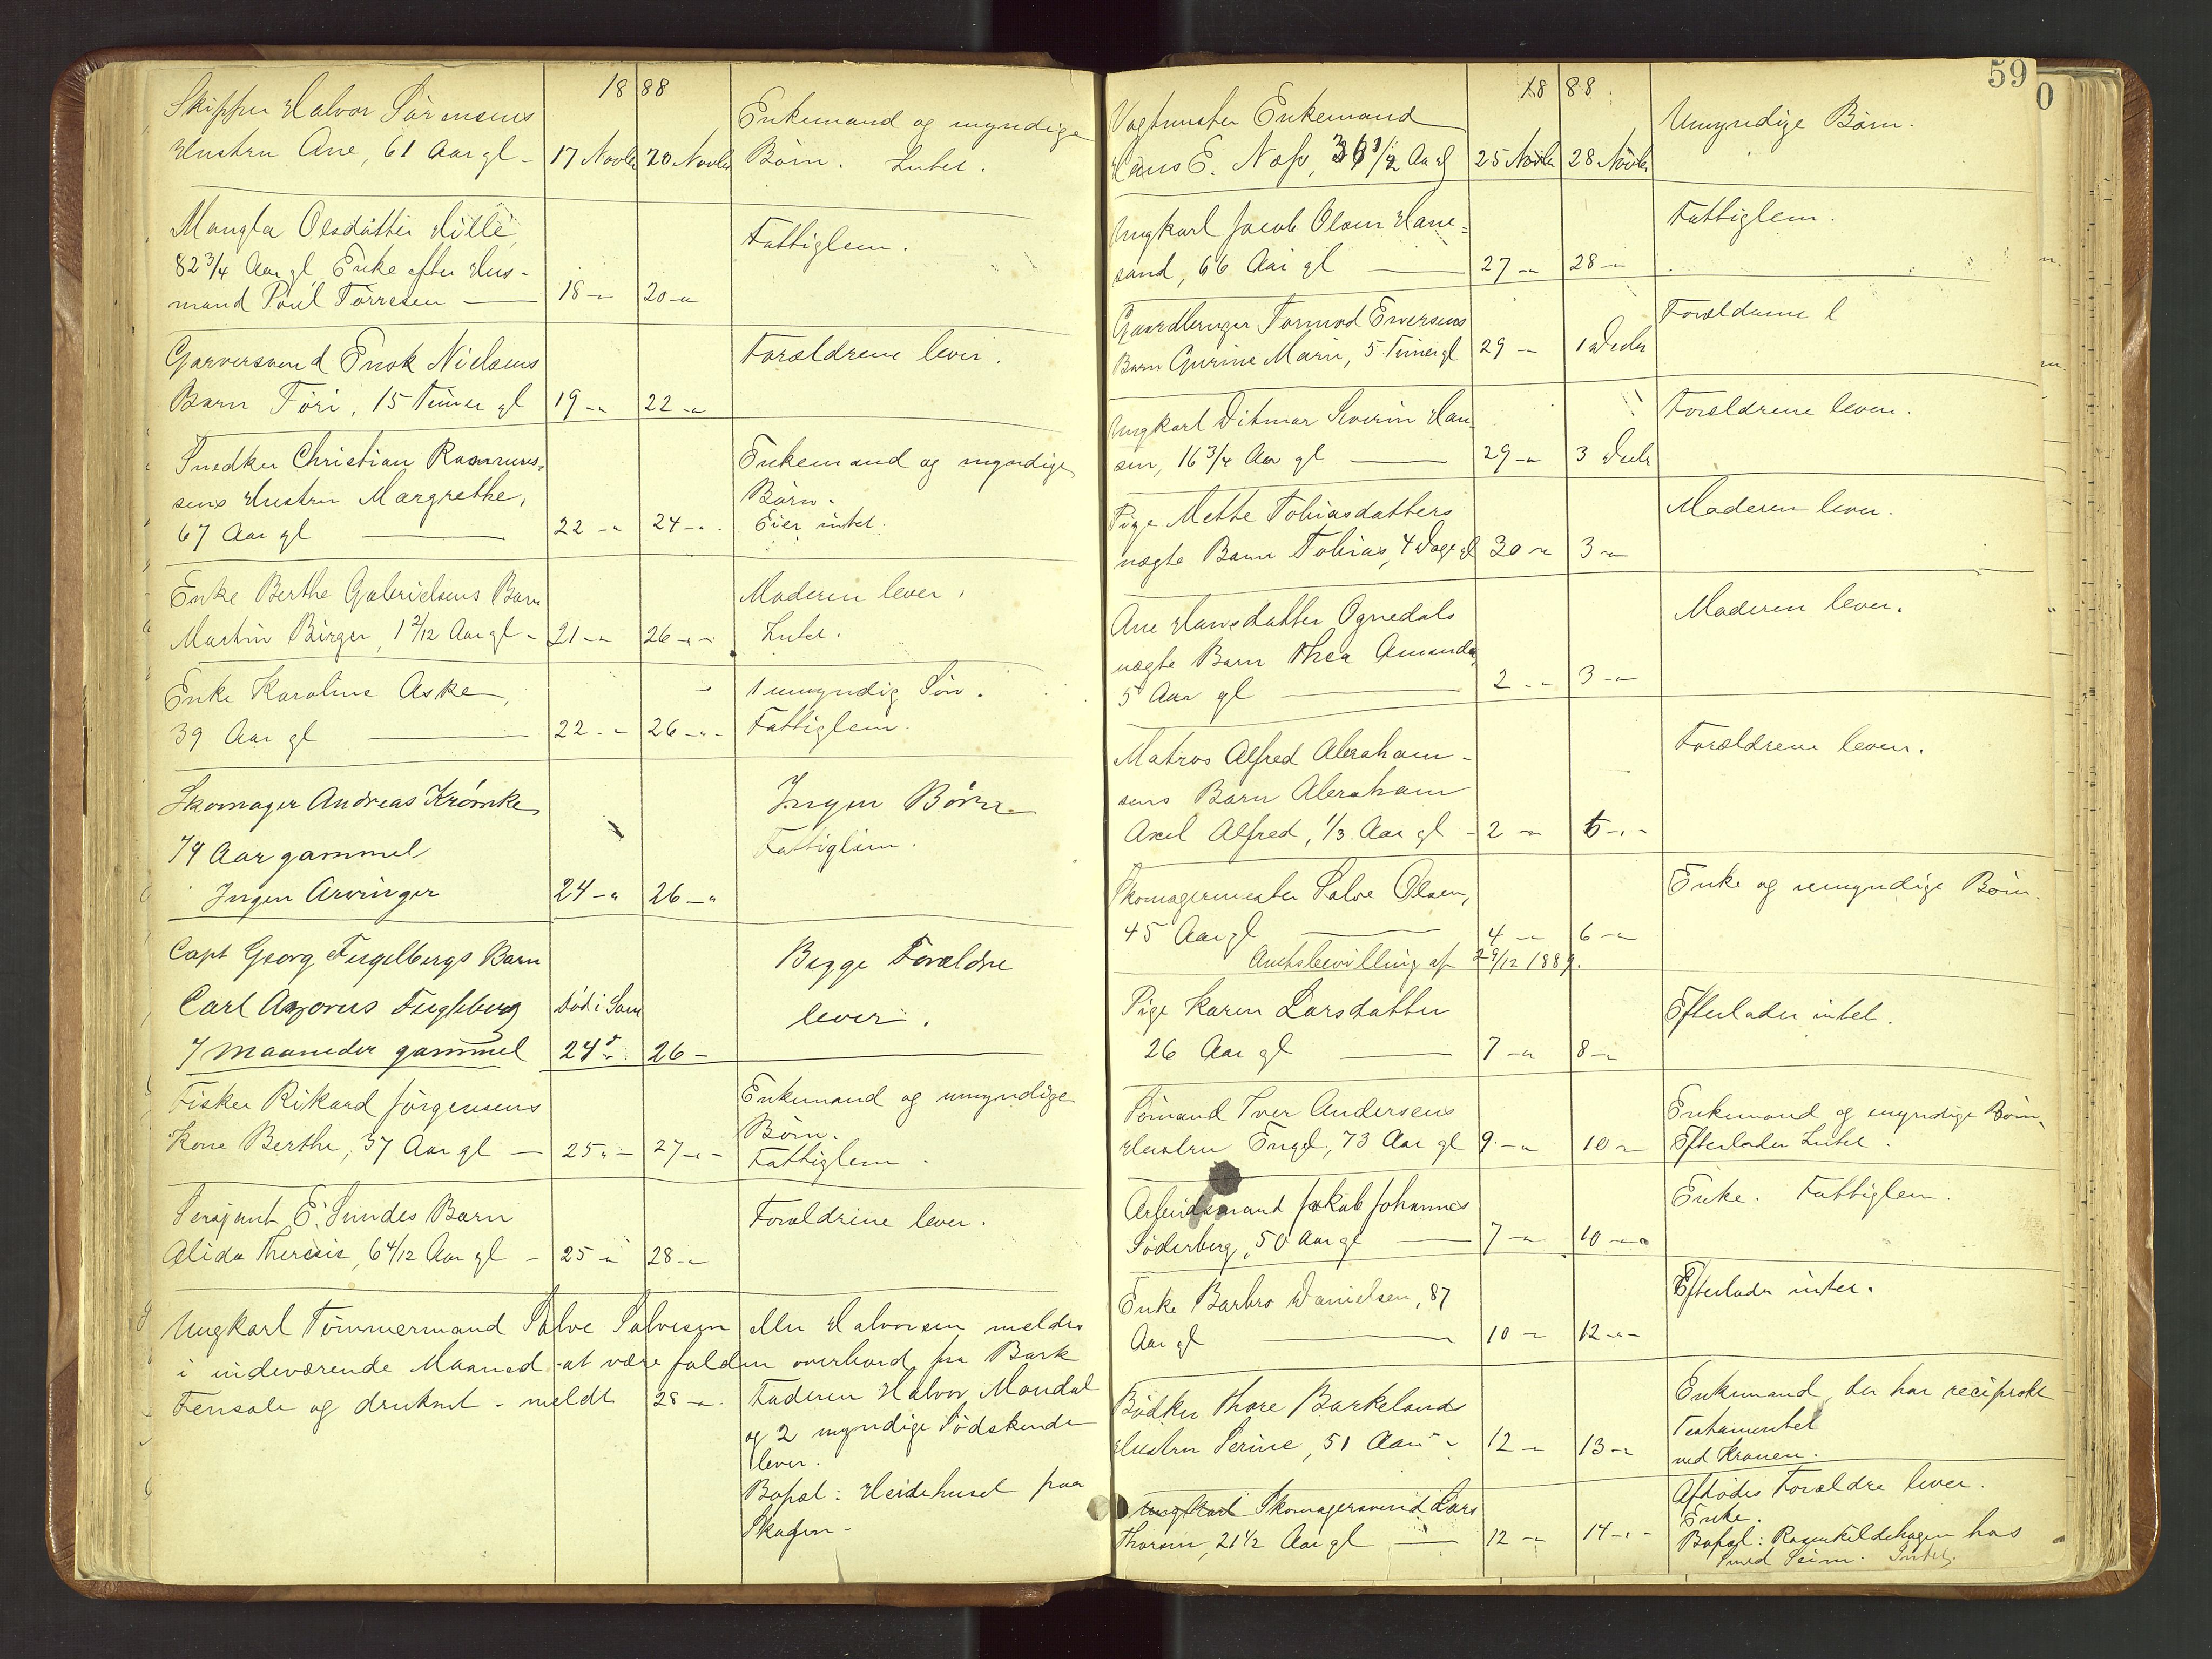 1888
Skipper Halvor Sørensens
Hustru Ane, 61 Aar gl - 17 Novbr 20 Novbr
Enkemand og myndige
Børn. Intet.
Mangla Olsdatter Hille
82 3/4 Aar gl, Enke efter Hus-
mand Poul Tørresen — 18 -"- 20 -"-
Fattiglem.
Garversvend Enok Nielsens
Barn Töri, 15 Timer gl 19 -"- 22 -"-
Forældrene lever.
Snedker Christian Rasmus-
sens Hustru Margrethe,
67 Aar gl — 22 -"- 24 -"-
Enkemand og myndige
Børn.
Eier intet.
Enke Berthe Gabrielsens Barn
Martin Birger, 1 2/12 Aar gl - 21 -"- 26 -"-
Moderen lever.
Intet.
Enke Karoline Aske,
39 Aar gl — 22 -"- 26 -"-
1 umyndig Søn.
Fattiglem.
Skomager Andreas Krömke
74 Aar gammel
Ingen Arvinger 24 -"- 26 -"-
Ingen Börn
Fattiglem.
Capt Georg Fugelbergs Barn
Carl Fugleberg Død i Sam
7 Maaneder gammel 24 26 -
Begge Forældre
lever.
Fisker Rikard Jørgensens
Kone Berthe, 37 Aar gl — 25 -"- 27 -"-
Enkemand og umyndige
Børn.
Fattiglem.
Sersjant E. Sundes Barn
Alida Theresie, 6 4/12 Aar gl - 25 -"- 28 -"-
Forældrene lever.
Ungkarl Tømmermand Salve Salvesen eller Halvorsen meldes
i indeværende Maaned at være falden overbord fra Bark
Fensale og druknet - meldt 28 -"- Faderen Halvor Mandal
og 2 myndige Södskende
lever.
Bopæl: Heidehuset paa
Skagen -
59
1888
Vagtmester Enkemand
Hans E. Næss, 36 1/2 Aar gl 25 Novbr 28 Novbr
Umyndige Børn.
Ungkarl Jacob Olsen Hane-
sand, 66 Aar gl — 27 -"- 28 -"-
Fattiglem.
Gaardbruger Tormod Eversens
Barn Gurine Marie, 5 Timer gl 29 -"- 1 Decbr
Forældrene l
Ungkarl Ditmar Severin Han-
sen, 16 3/4 Aar gl — 29 -"- 3 Decbr
Forældrene lever.
Pige Mette Tobiasdatters
uægte Barn Tobias, 4 Dage gl 30 -"- 3 -"-
Moderen lever.
Ane Hansdatter Ognedals
uægte Barn Thea Amanda,
5 Aar gl — 2 -"- 3 -"-
Moderen lever.
Matros Alfred Abraham-
sens Barn Abraham
Axel Alfred, 1/3 Aar gl - 2 -"- 5 -"-
Forældrene lever.
Skomagermester Salve Olsen,
45 Aar gl — 4 -"- 6 -"-
Amtsbevilling af 29/12 1889.
Enke og umyndige Børn.
Pige Karen Larsdatter
26 Aar gl — 7 -"- 8 -"-
Efterlader intet.
Sømand Iver Andersens
Hustru Engel, 73 Aar gl 9 -"- 10 -"-
Enkemand og myndige Børn,
Efterlader Intet.
Arbeidsmand Jakob Johannes
Söderberg, 50 Aar gl — 7 -"- 10 -"-
Enke. Fattiglem.
Enke Barbro Danielsen, 87
Aar gl — 10 -"- 12 -"-
Efterlader intet.
Bødker Thore Barkelands
Hustru Serine, 51 Aar - 12 -"- 13 -"-
Enkemand, der har reciprokt
Testamentet
ved Kronen.
Ungkarl Skomagersvend Lars
Thorsen, 21 1/2 Aar gl — 12 -"- 14 -"-
Afdødes Forældre lever.
Enke.
Bopæl: Rosenkildehagen hos
Smed Seim. Intet.